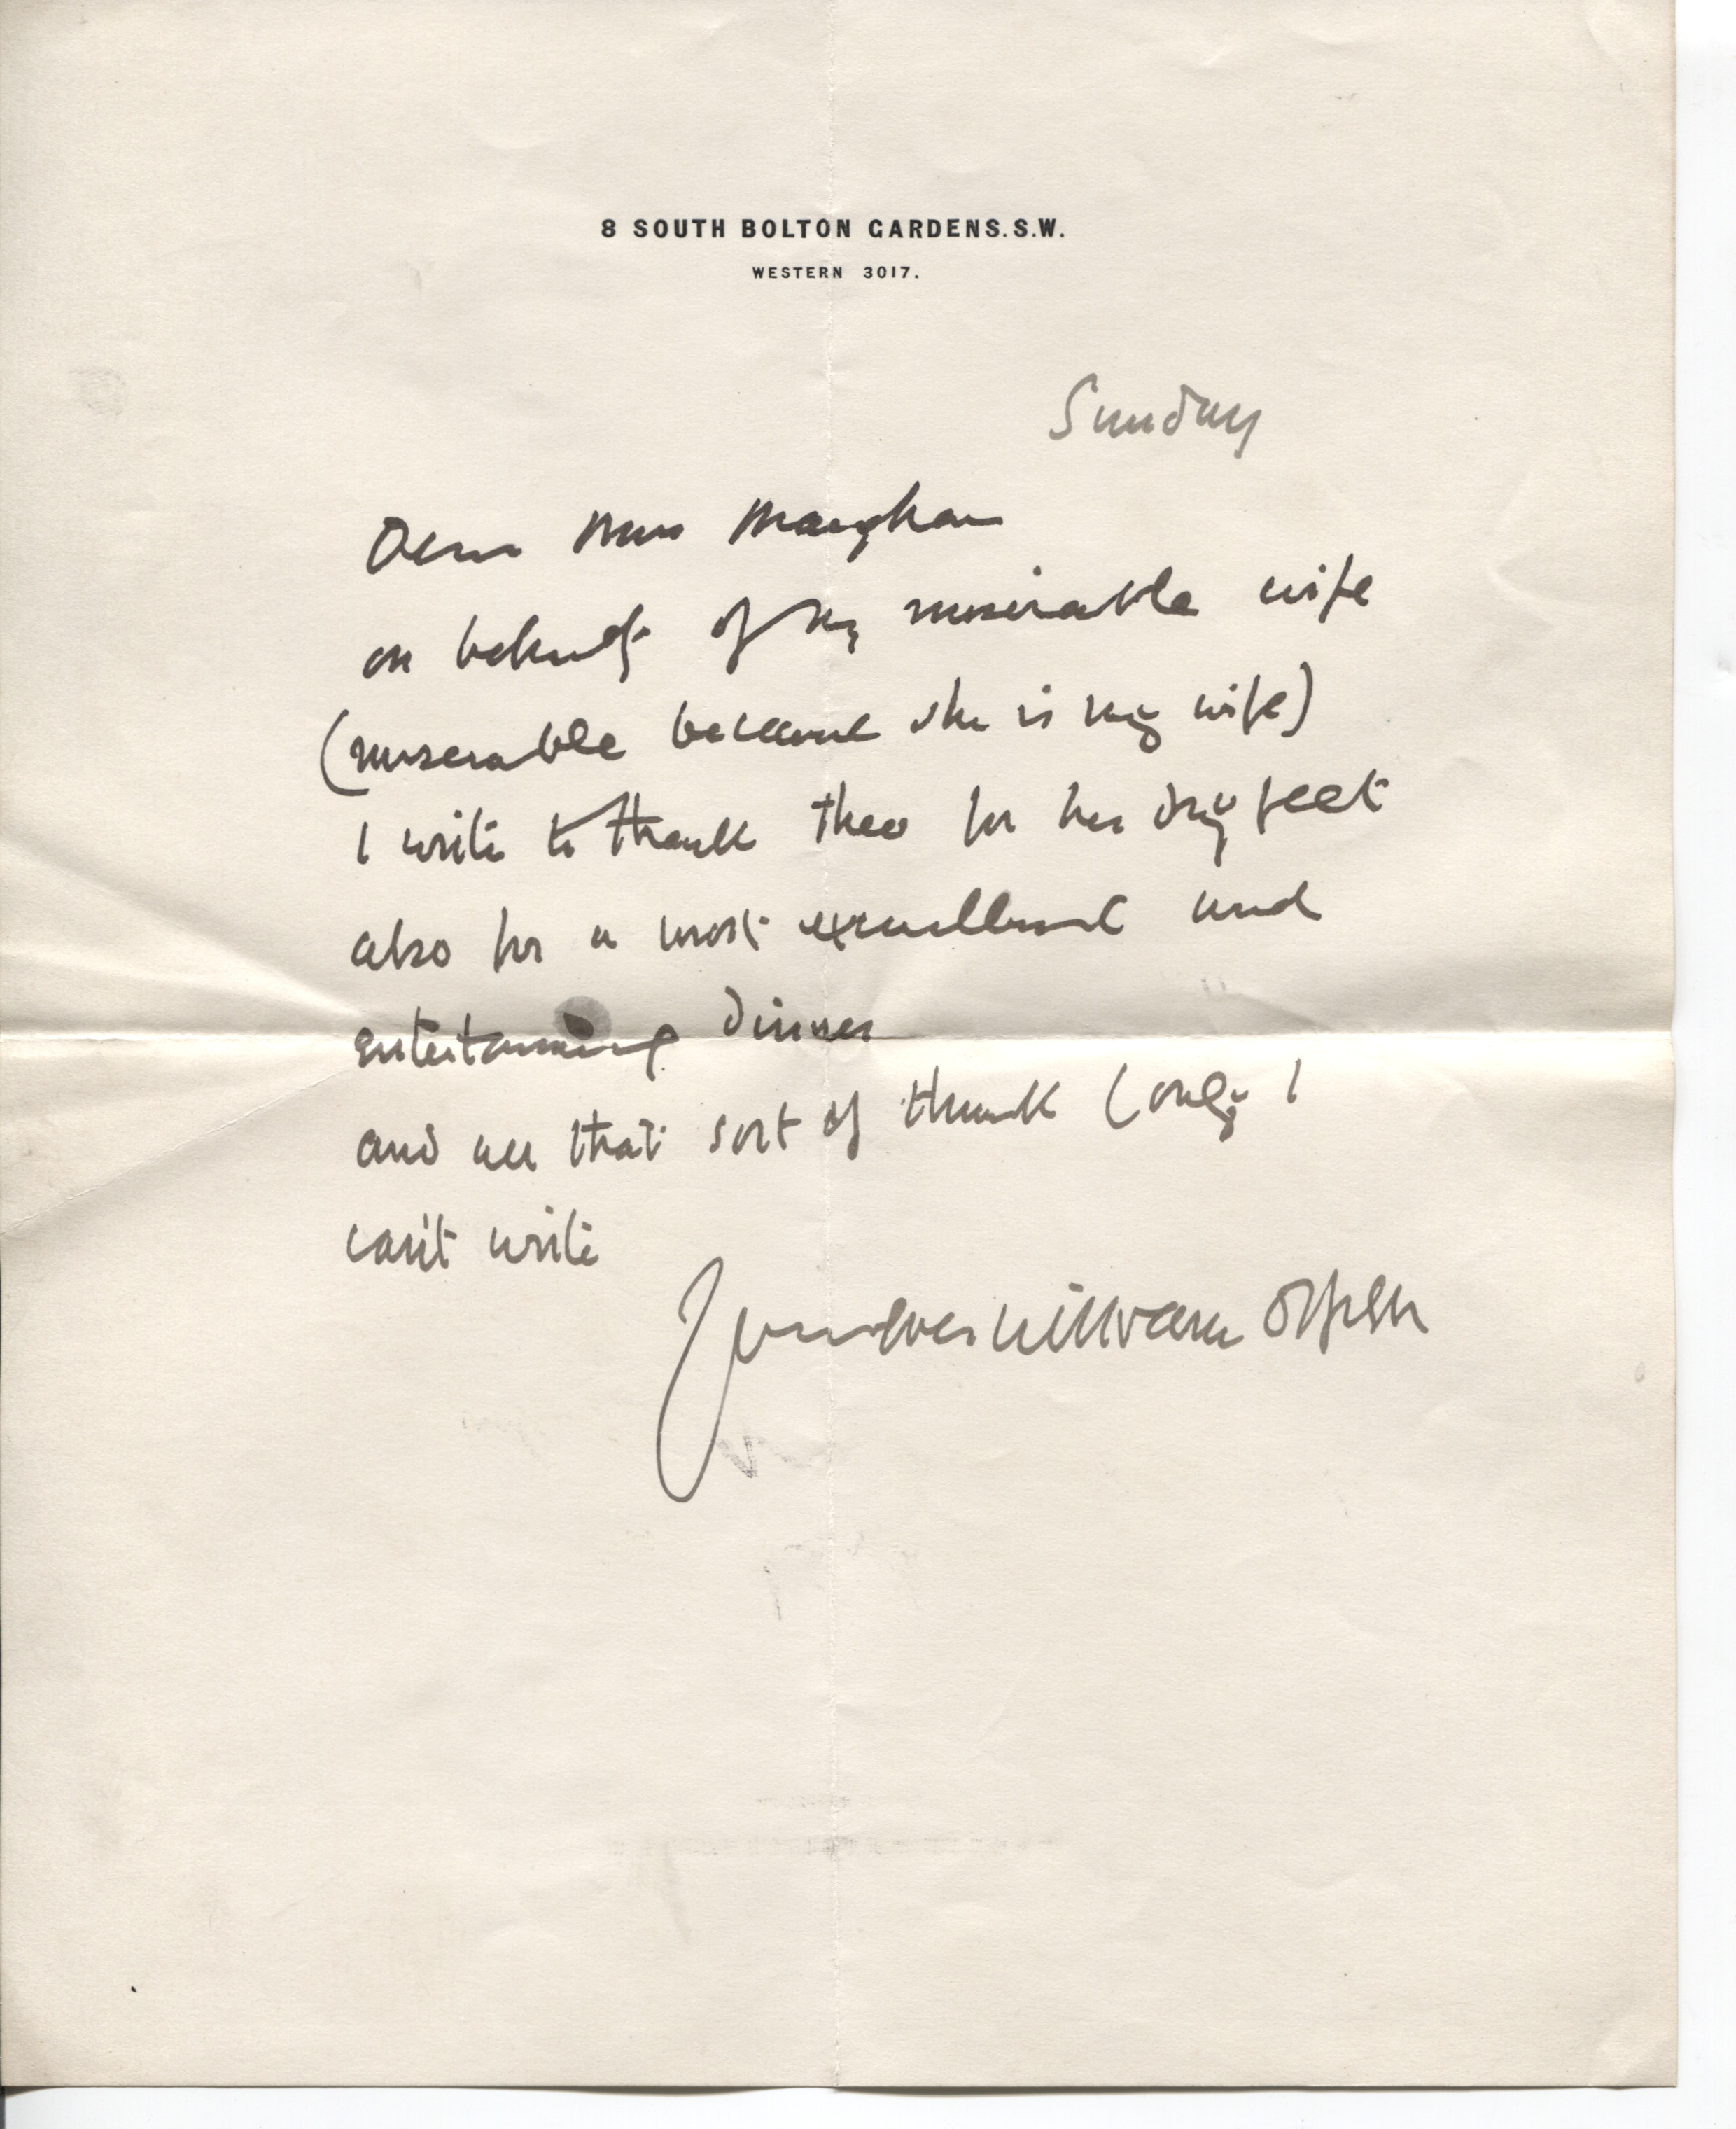 8 SOUTH BOLTON GARDENS. S.W.
WESTERN 3017.
Sunday
Dear Mrs Maugham
on behalf of my miserable wife
(miserable because she is my wife)
I write to thank thee for her dry feet
also for a most excellent and
entertaining dinner
and all that sort of thank (only I
can't write
Yours ever William Orpen